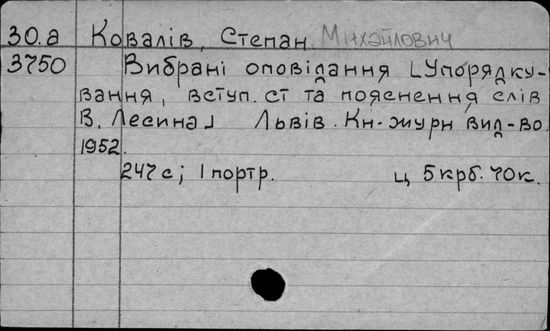 30.а Ковалів, Степан Міхайлович
3750 Вибрані оповідання [Упорядку-
вання, вступ. ст та пояснення слів
В. Лесина] Львів. Кн-журн вид-во.
1952.
247 с; 1 портр. ц 5 крб. 70к.